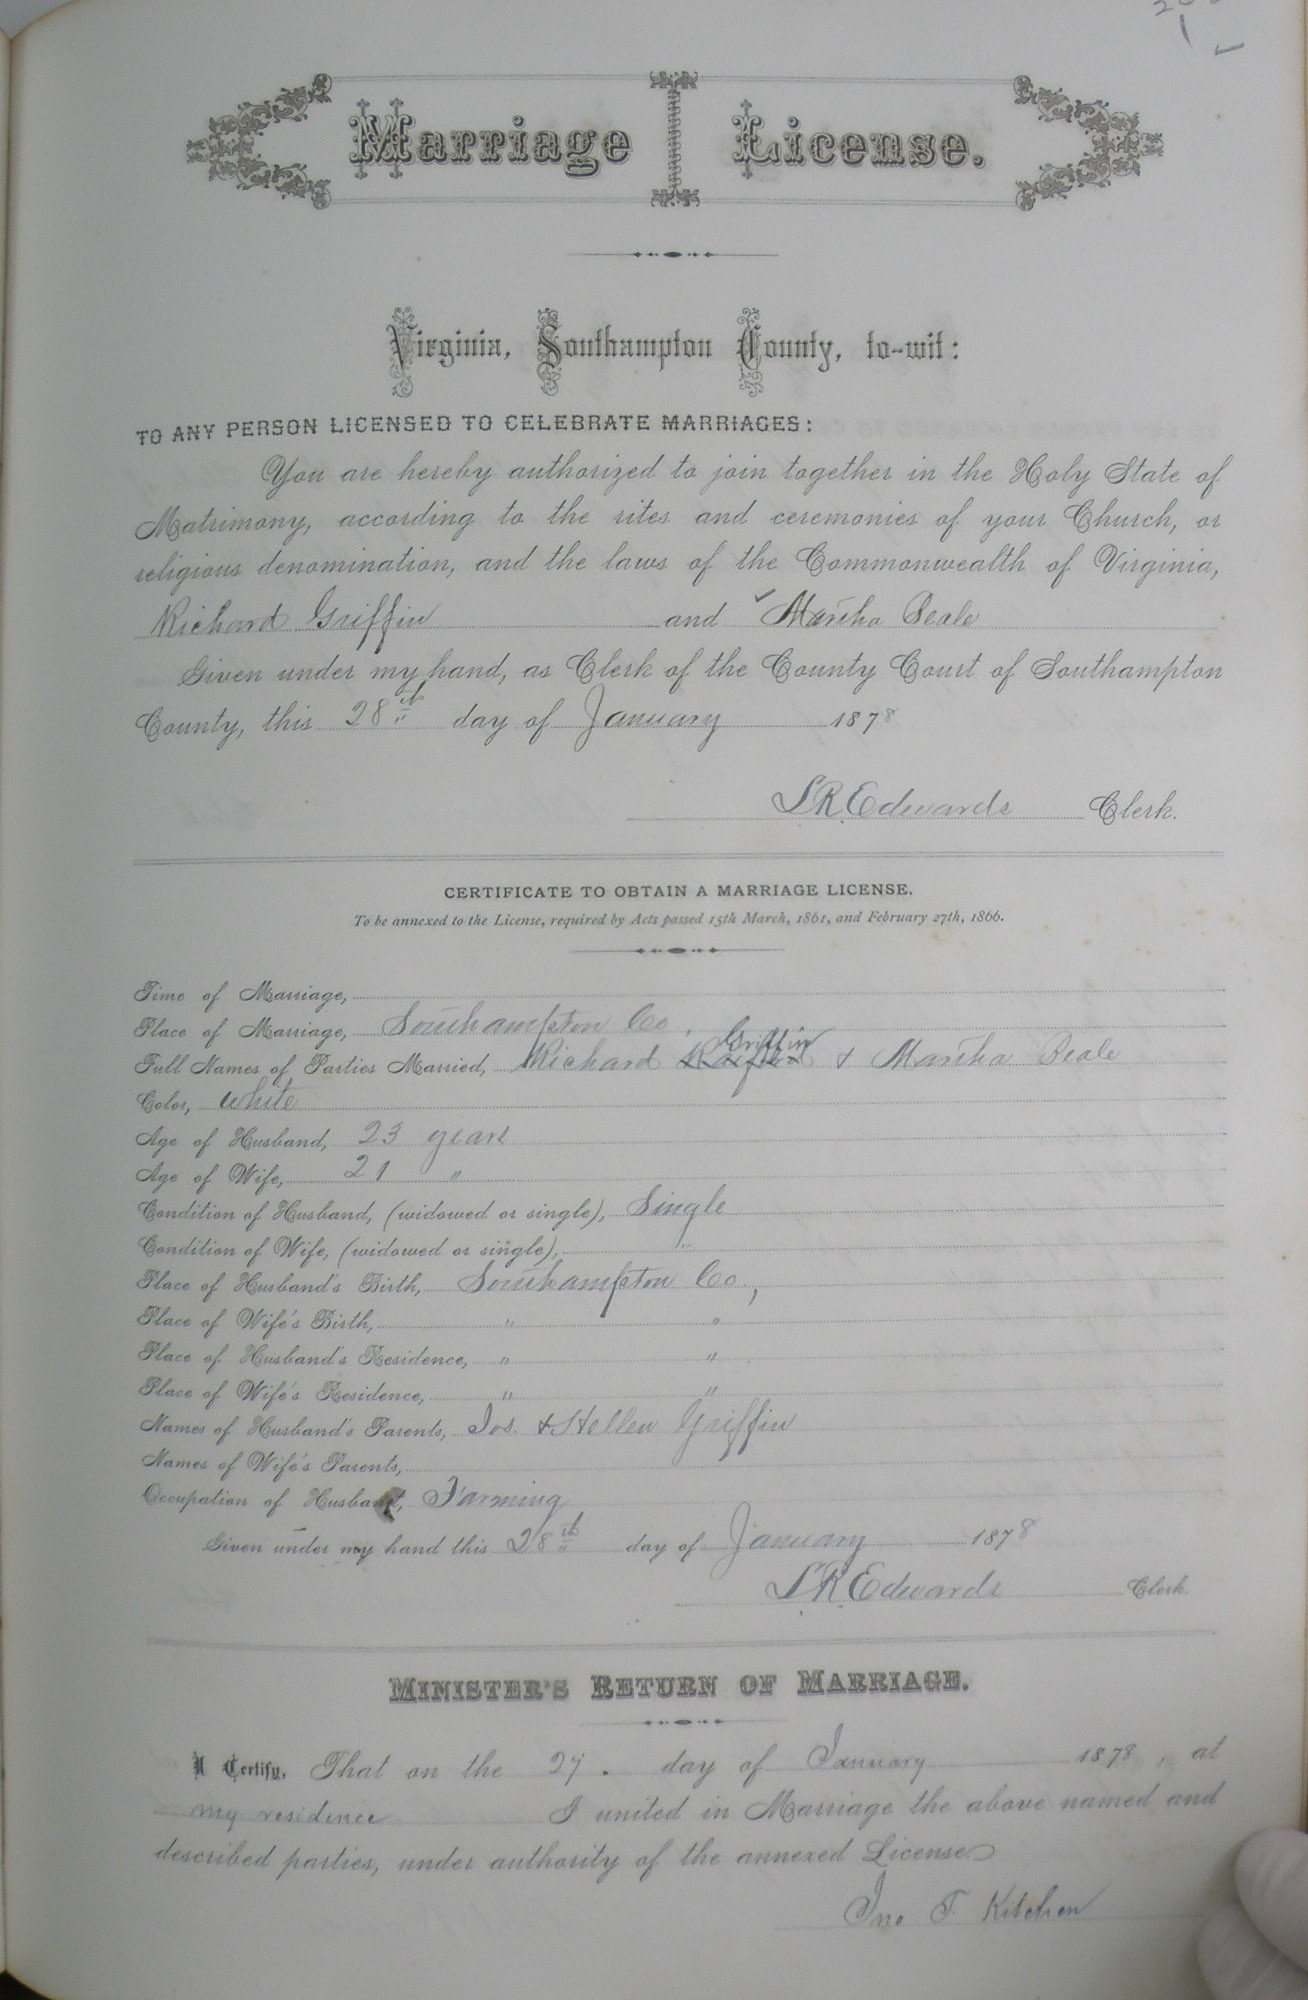 Marriage License.
Virginia, Southampton County, to-wit:
TO ANY PERSON LICENSED TO CELEBRATE MARRIAGES:
You are hereby authorized to join together in the Holy State of
Matrimony, according to the rites and ceremonies of your Church, or
religious denomination, and the laws of the Commonwealth of Virginia,
Richard Griffin and Martha Beale
Given under my hand, as Clerk of the County Court of Southampton
County, this 28th day of January 1878
L R Edwards Clerk.
CERTIFICATE TO OBTAIN A MARRIAGE LICENSE.
To be annexed to the License, required by Acts passed 15th March, 1861, and February 27th, 1866.
Time of Marriage,
Place of Marriage, Southampton Co.
Griffin
Full Names of Parties Married, Richard & Martha Beale
Color, white
Age of Husband, 23 years
Age of Wife, 21 "
Condition of Husband, (widowed or single), Single
Condition of Wife, (widowed or single), "
Place of Husband's Birth, Southampton Co,
Place of Wife's Birth, " "
Place of Husband's Residence, " "
Place of Wife's Residence, " "
Names of Husband's Parents, Jos. & Hellen Griffin
Names of Wife's Parents,
Occupation of Husband, Farming
Given under my hand this 28th day of January 1878
L R Edwards Clerk.
MINISTER'S RETURN OF MARRIAGE.
I Certify, That on the day of January 1878, at
my residence I united in Marriage the above named and
described parties, under authority of the annexed License
Jno T. Kitchen